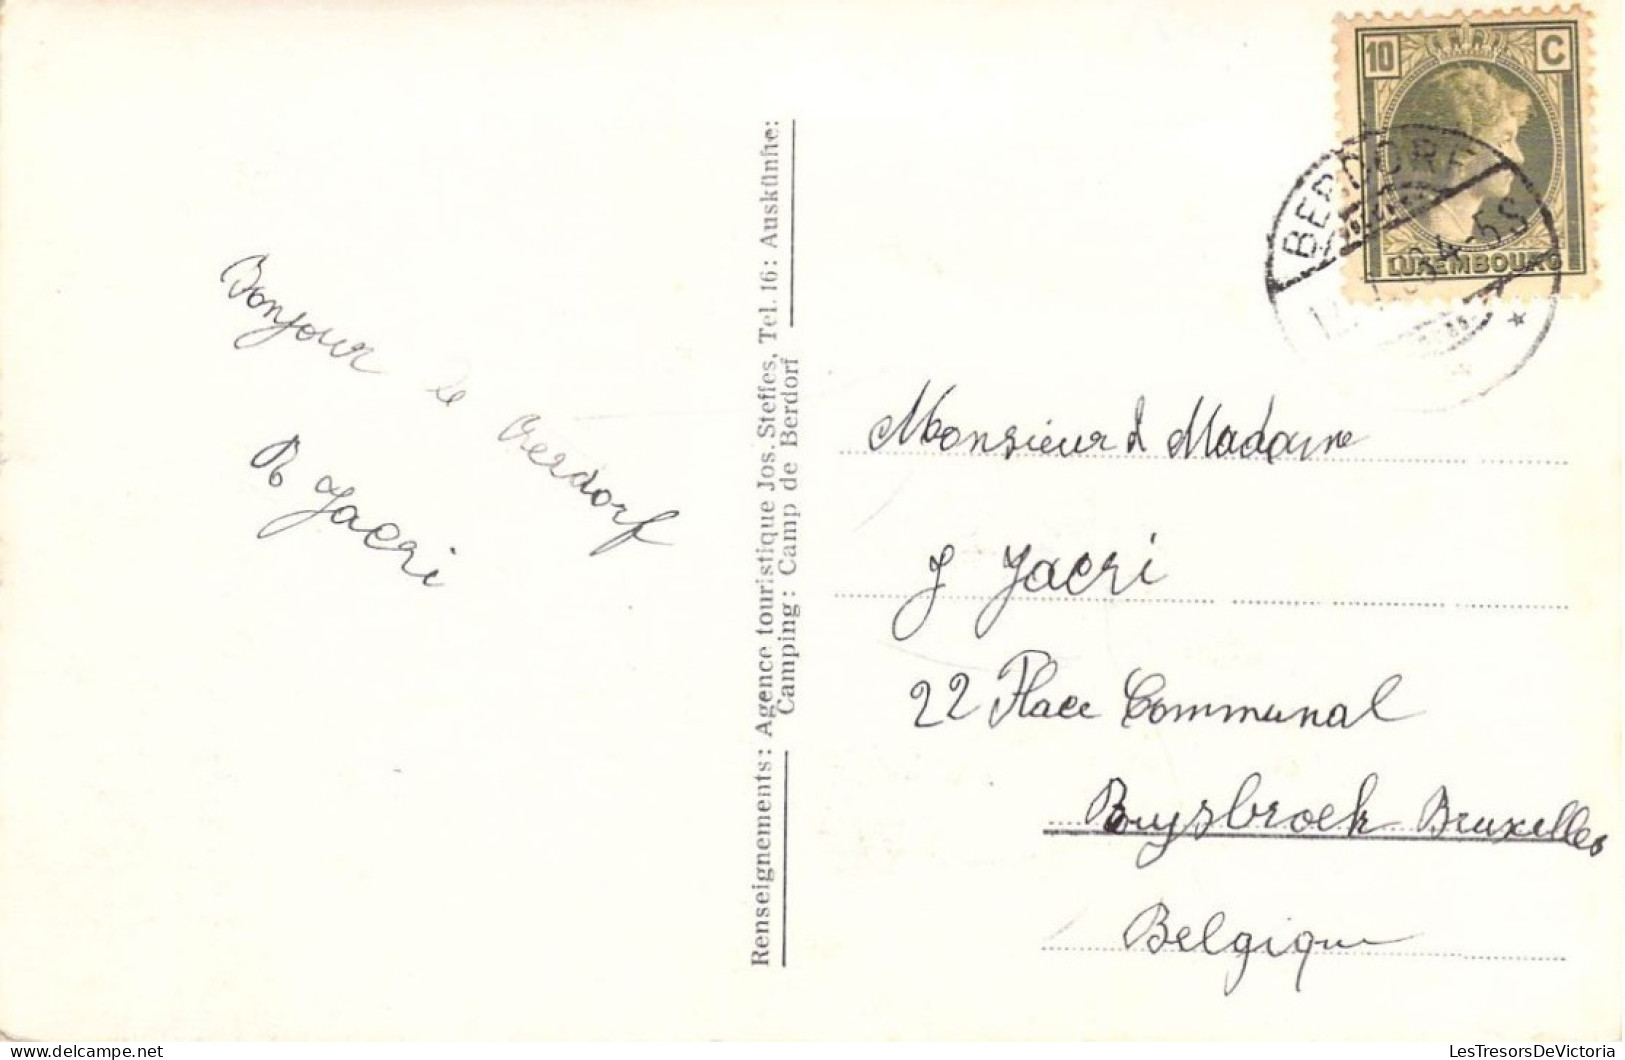 Bonjour de Berdorf
R Jacri
Renseignements: Agence touristique Jos. Steffes, Tel. 16: Auskünfte:
Camping: Camp de Berdorf
10 C
LUXEMBOURG
BERDORF
34-5S
Monsieur & Madame
J Jacri
22 Place Communal
Buysbroek Bruxelles
Belgique
LesTresorsDeVictoria